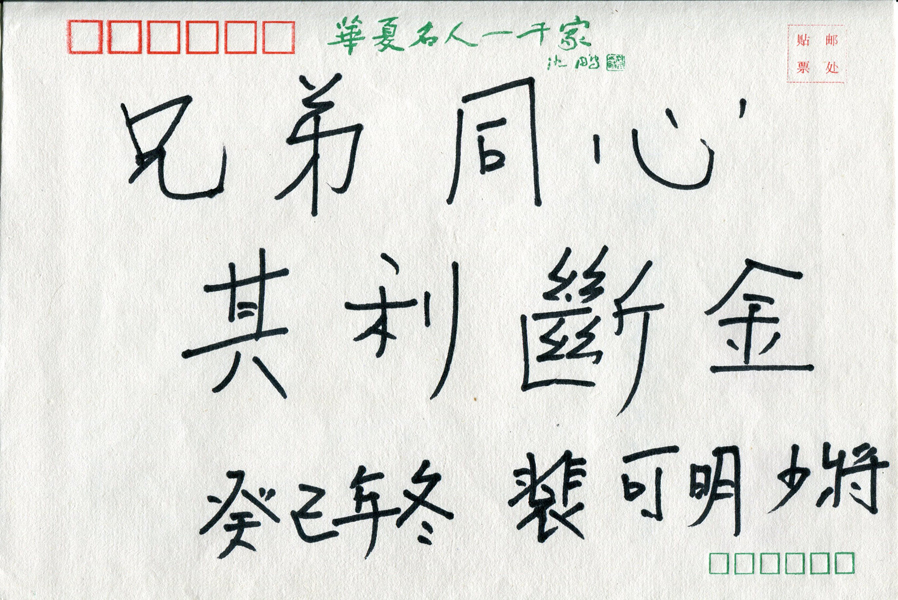 華夏名人一千家
沈鹏
贴 邮
票 处
兄弟同心
其利斷金
癸巳年冬 裴可明少將